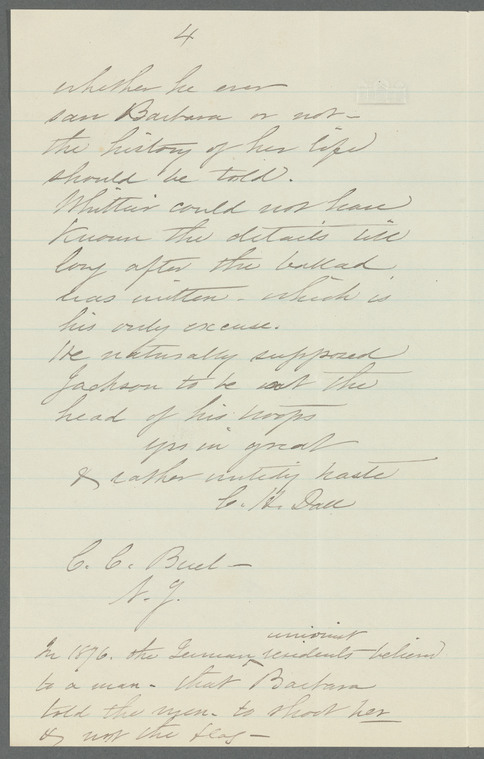 4
whether he ever
saw Barbara or not -
the history of her life
should be told.
Whittier could not have
known the details till
long after the ballad
was written - which is
his only excuse.
He naturally supposed
Jackson to be at the
head of his troops
yrs in great
& rather untidy haste
C. H. Dall
C. C. Buel -
N. Y.
unionist
In 1896. the German residents believed
to a man - that Barbara
told the men - to shoot her
& not the flag -